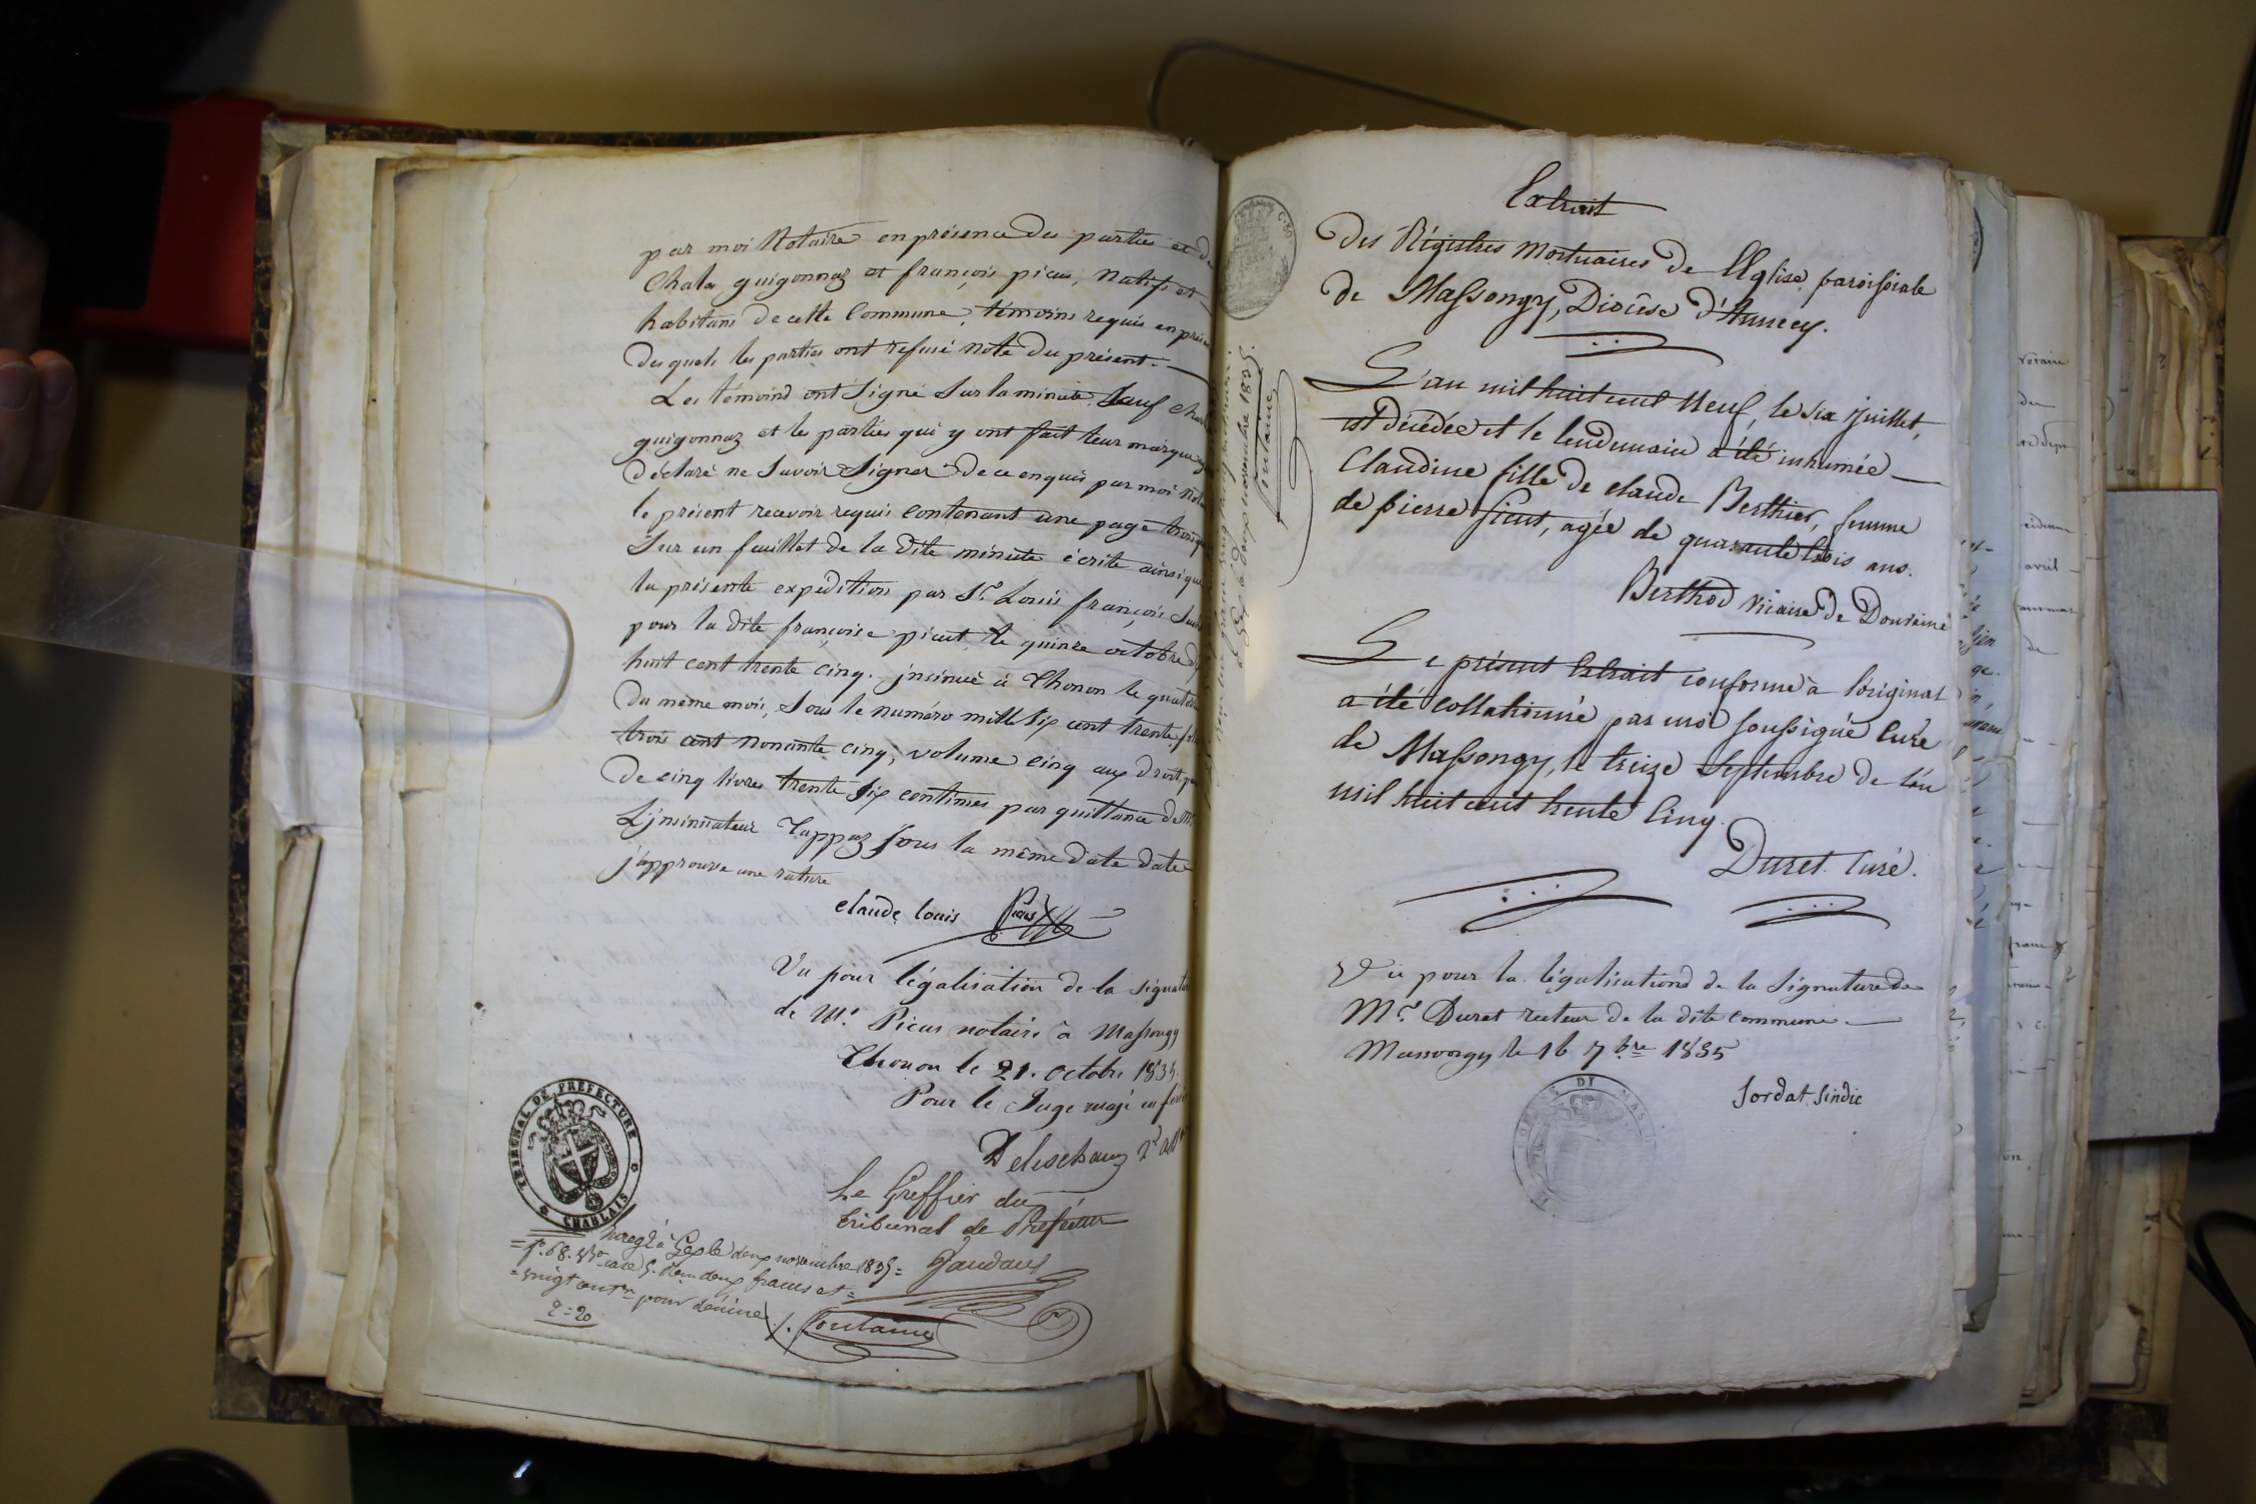 par moi Notaire en présence des parties et de
Chala guigonnaz et françois picus, Natifs et
habitans de cette Commune, témoins requis en prés
des quels les parties ont refusé note du présent.
Les témoind ont Signé Sur la minute Sauf Chal
guigonnaz et les parties qui y ont fait leur marque
déclaré ne Savoir Signer de ce enquis par moi not
le présent recevoir requis Contenant une page
Sur un feuillet de la dite minute écrite ainsi que
la présente expédition par Sr. Louis françois
pour la dite françoise picut le quinze octobre
huit cent trente cinq. jnsinué à Thonon le
du même mois, Sous le numéro mille six cent trente
trois cent nonante cinq, volume cinq aux droits
de cinq livres trente six centimes par quittance de Mr
L'jnsinuateur Tappaz Sous la même date date
j'approuve une rature
claude louis Picus
Vu pour légalisation de la signatu
de Mr. Picus notaire à Massongy
Thonon le 21. octobre 1835.
Pour le Juge maje en
Le Greffier du
tribunal de Préfecture
TRIBUNAL DE PREFECTURE
CHABLAIS
Enreg. à Gex le deux novembre 1835 =
fo. 68. Vo. case 5. Reçu deux francs et =
= vingt cent. pour décime
2=20
Fontaine
Extrait
des Régistres Mortuaires de l'Eglise paroissiale
de Massongy, Diocèse d'Annecy.
L'an mil huit cent Neuf, le six juillet,
est décédée et le lendemain a été inhumée
Claudine fille de claude Berthier, femme
de pierre picut, agée de quarante trois ans.
Berthod vicaire de Douvaine
Le présent Extrait conforme à l'original
a été collationné par moi soussigné Curé
de Massongy, le treize Septembre de l'an
mil huit cent trente Cinq.
Duret Curé.
Vu pour la légalisationd de la Signature de
Mr. Duret recteur de la dite commune
Massongy le 16 7bre 1835
Jordat Sindic
à Gex le deux novembre 1835.
Fontaine